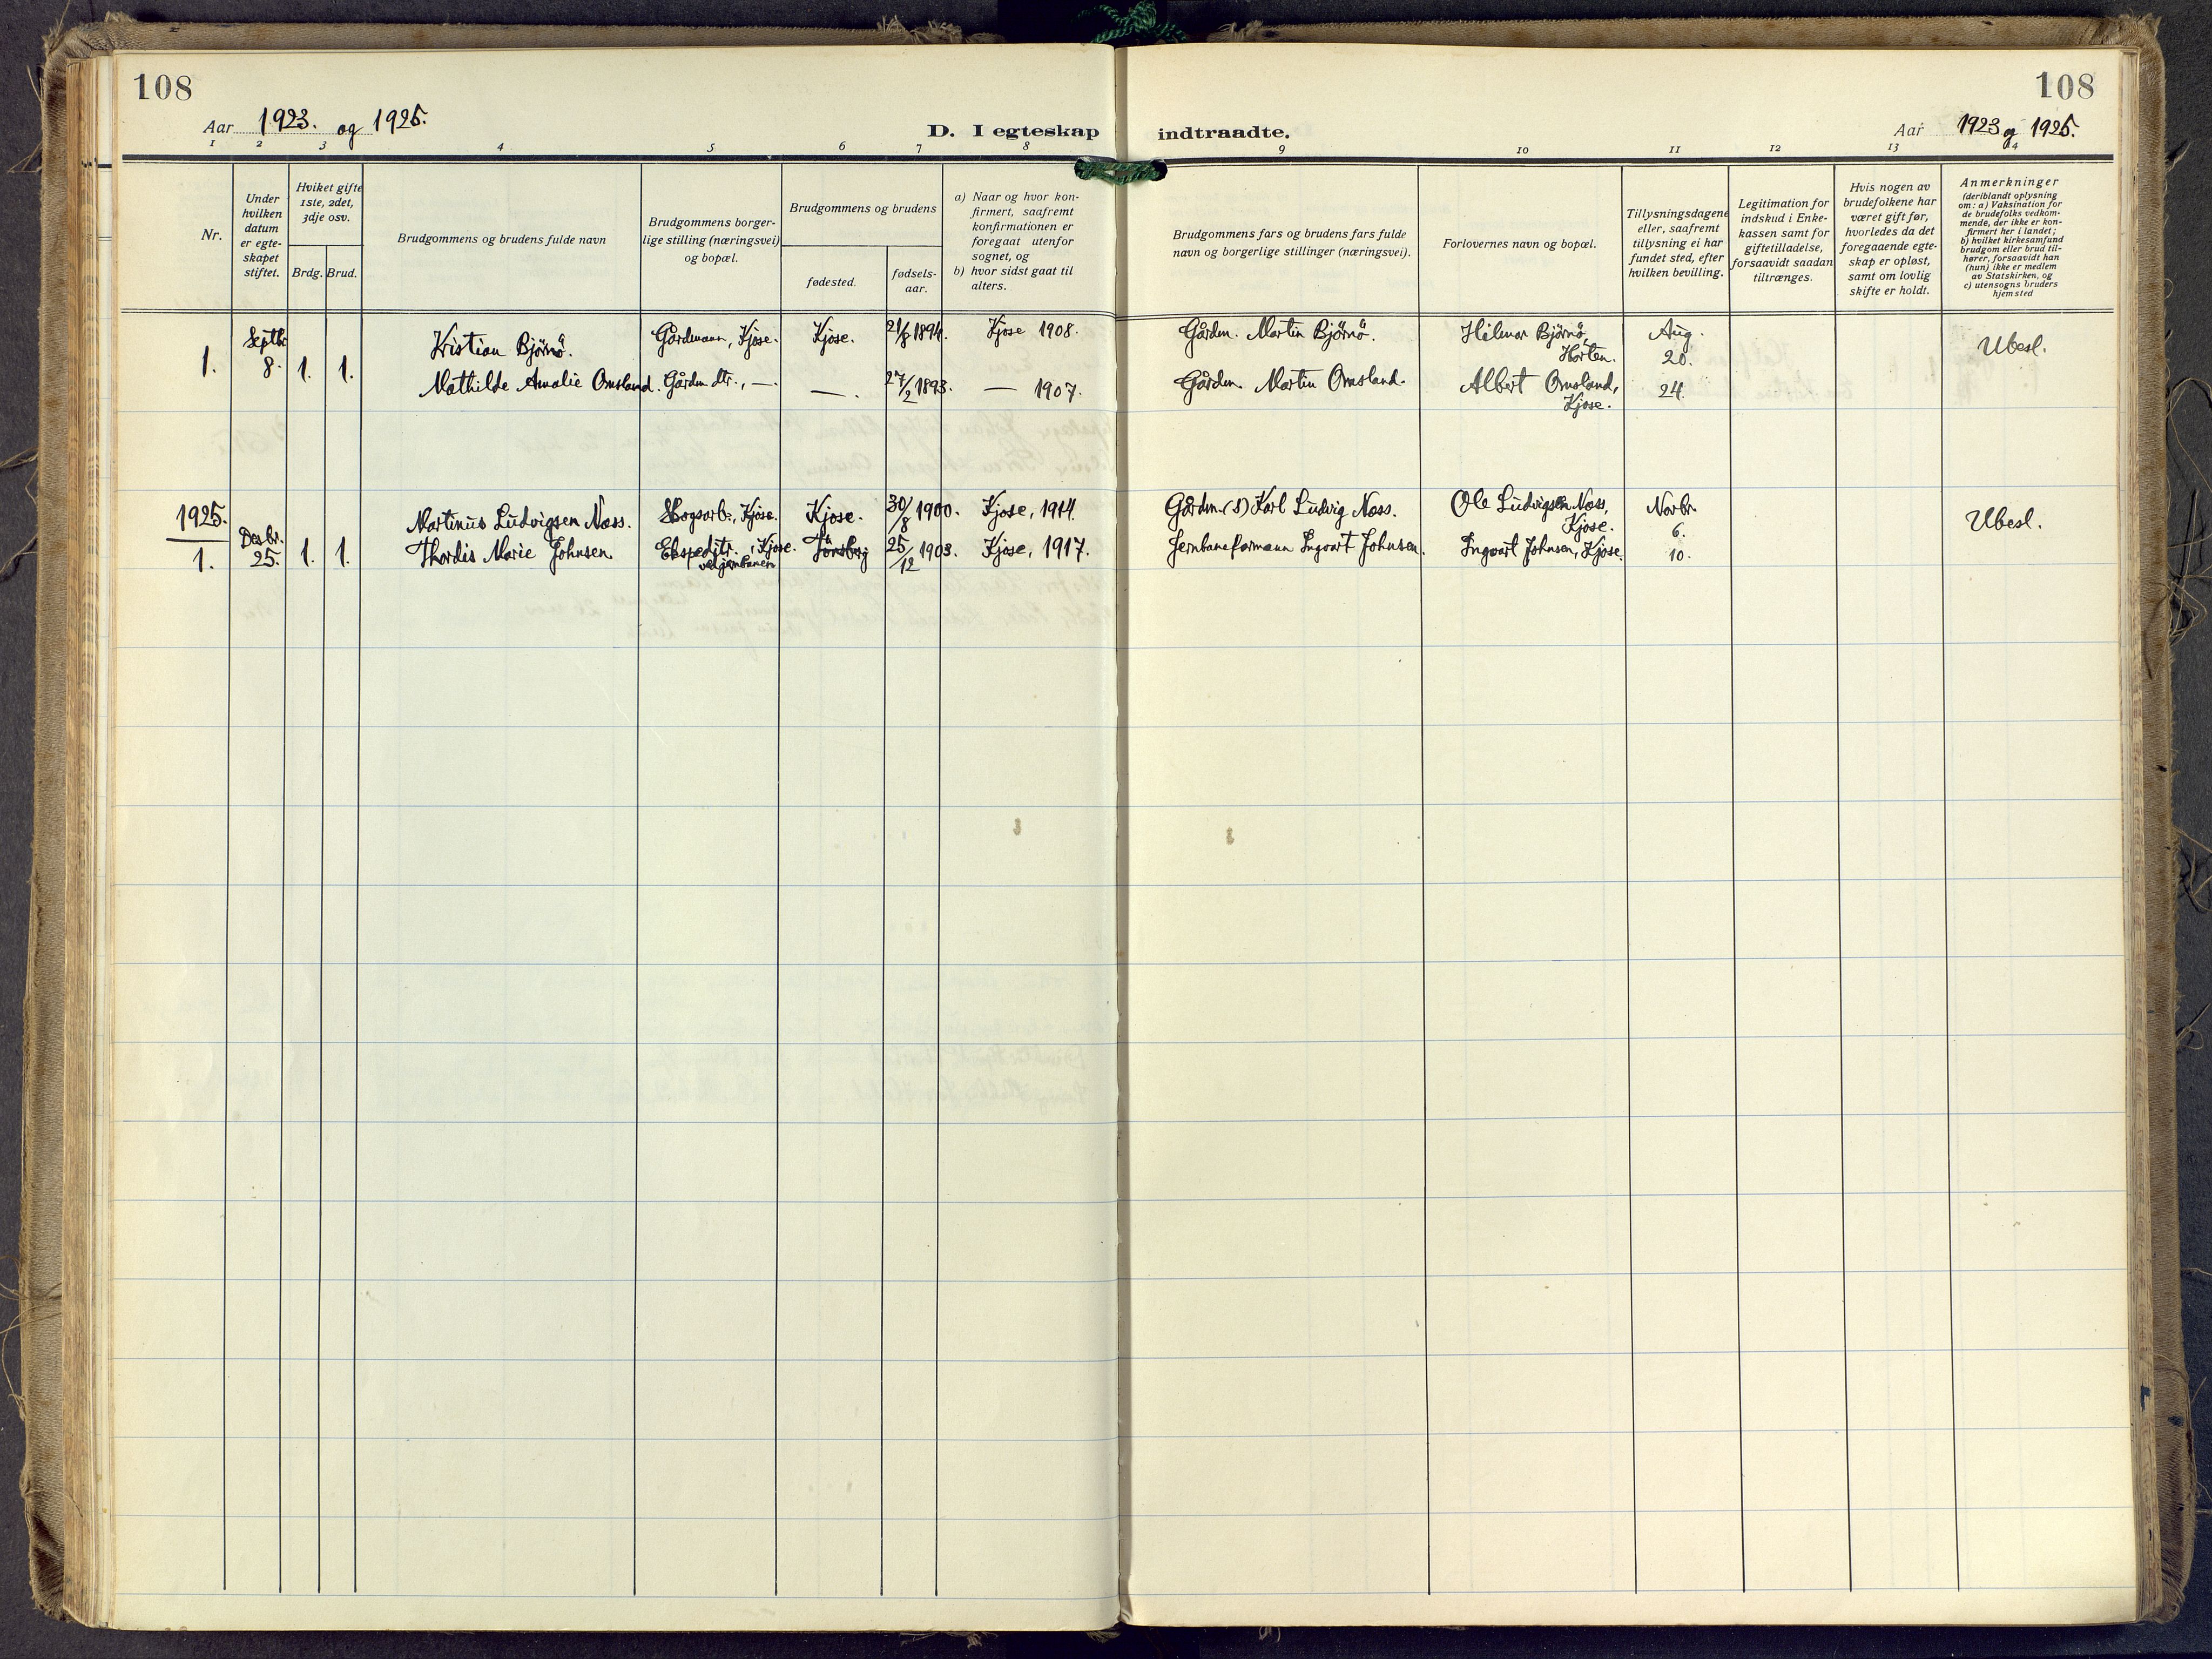 108
108
Aar 1923. og 1925.
D. I egteskap indtraadte.
Aar 1923 og 1925.
1 2 3 4 5 6 7 8 9 10 11 12 13 14
Nr.
Under
hvilken
datum
er egte-
skapet
stiftet.
Hviket gifte
1ste, 2det,
3dje osv.
Brdg. Brud.
Brudgommens og brudens fulde navn
Brudgommens borger-
lige stilling (næringsvei)
og bopæl.
Brudgommens og brudens
fødested.
fødsels-
aar.
a) Naar og hvor kon-
firmert, saafremt
konfirmationen er
foregaat utenfor
sognet, og
b) hvor sidst gaat til
alters.
Brudgommens fars og brudens fars fulde
navn og borgerlige stillinger (næringsvei).
Forlovernes navn og bopæl.
Tillysningsdagene
eller, saafremt
tillysning ei har
fundet sted, efter
hvilken bevilling.
Legitimation for
indskud i Enke-
kassen samt for
giftetilladelse,
forsaavidt saadan
tiltrænges.
Hvis nogen av
brudefolkene har
været gift før,
hvorledes da det
foregaaende egte-
skap er opløst,
samt om lovlig
skifte er holdt.
Anmerkninger
(deriblandt oplysning
om: a) Vaksination for
de brudefolks vedkom-
mende, der ikke er kon-
firmert her i landet;
b) hvilket kirkesamfund
brudgom eller brud til-
hører, forsaavidt han
(hun) ikke er medlem
av Statskirken, og
c) utensogns bruders
hjemsted
1.
Septbr.
8.
1. 1.
Kristian Bjørnö. Gårdmann, Kjose. Kjose. 21/8 1894. Kjose 1908. Gårdm. Martin Bjørnö. Hilmar Bjørnö, Horten. Aug. 20. Ubesl.
Mathilde Amalie Omsland. Gårdm. dtr., —. —. 27/2 1893. — 1907. Gårdm. Martin Omsland. Albert Omsland, Kjose. 24.
1925.
1.
Desbr.
25.
1. 1.
Martinus Ludvigsen Næss. Skogsarb., Kjose. Kjose. 30/8 1900. Kjose, 1914. Gårdm. (S) Karl Ludvig Næss. Ole Ludvigsen Næss, Kjose. Novbr. 6. Ubesl.
Thordis Marie Johnsen. Ekspeditr. ved jernbanen, Kjose. Tönsberg 25/12 1903. Kjose, 1917. Jernbaneformann Ingvart Johnsen. Ingvart Johnsen, Kjose. 10.